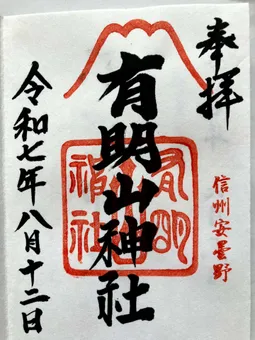 奉拝
信州安曇野
有明山神社
有明山神社
令和七年八月十二日